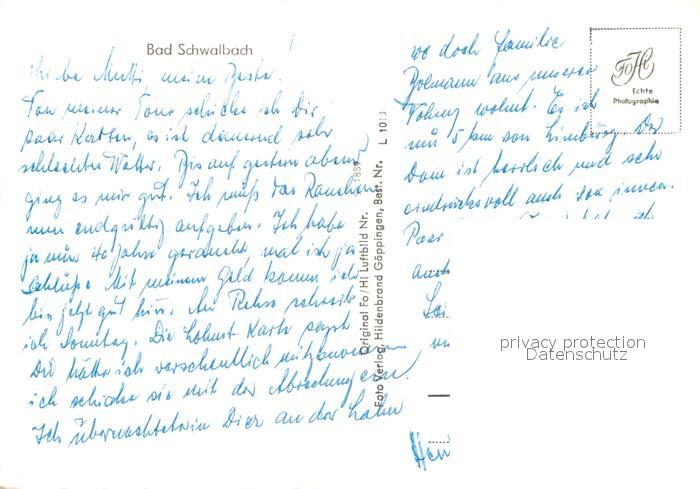 Bad Schwalbach
Liebe Mutti, meine Beste!
Von meiner Tour schicke ich Dir
paar Karten, es ist dauernd sehr
schlechtes Wetter. Bis auf gestern abend
ging es mir gut. Ich muß das Rauchen
nun endgültig aufgeben. Ich habe
ja nun 40 Jahre geraucht, mal ist ja
Schluß. Mit meinem Geld komm ich
bis jetzt gut hin. An Rehse schreib
ich Sonntag. Die Lohnst. Karte sagst
Du hätte ich versehentlich mitgenommen
ich schicke sie mit der Abrechnung ein.
Ich übernachtete in Diez an der Lahn
wo doch Familie
aus unserer
wohnt. Es ist
nur 5 km von Limburg. Der
Dom ist herrlich und sehr
eindrucksvoll auch von innen.
Paar
Original Fo/Hi Luftbild Nr. 1889
Foto Verlag, Hildenbrand Göppingen, Best. Nr. L 1013
FoHi
Echte
Photographie
privacy protection
Datenschutz